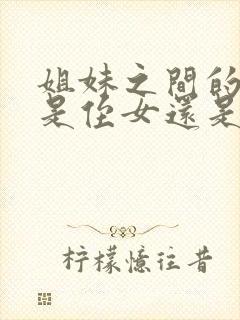 姐妹之間的
是侄女還是
柠檬憶往昔